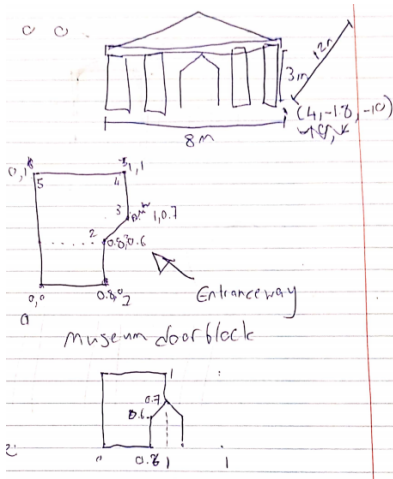 12m
3m
(4,-18,-10)
8m
0,1
1,1
5
4
3
1,0.7
2
0.8,0.6
0,0
0.8,0
Entranceway
Museum door block
1
0.7
0.6
0.8
1
1